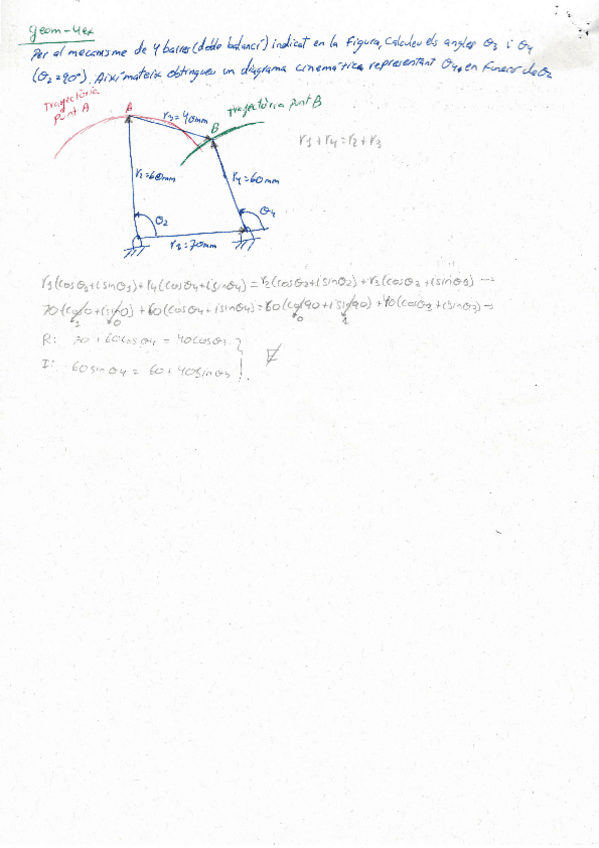 geom-4ex
Per al mecanisme de 4 barres (doble balancí) indicat en la Figura, Calculeu els angles θ3 i θ4
(θ2=90°). Així mateix obtingueu un diagrama cinemàtica representant θ4, en funció de θ2
Trajectòria
punt A
A
r3=40mm
Trajectòria punt B
B
r1+r4=r2+r3
r2=60mm
r4=60mm
θ2
θ4
r1=70mm
r1(cosθ1+isinθ1)+r4(cosθ4+isinθ4)=r2(cosθ2+isinθ2)+r3(cosθ3+isinθ3)
70(cos0+isin0)+60(cosθ4+isinθ4)=60(cos90+isin90)+40(cosθ3+isinθ3)
1 0 0 1
R: 70+60cosθ4=40cosθ3
I: 60sinθ4=60+40sinθ3